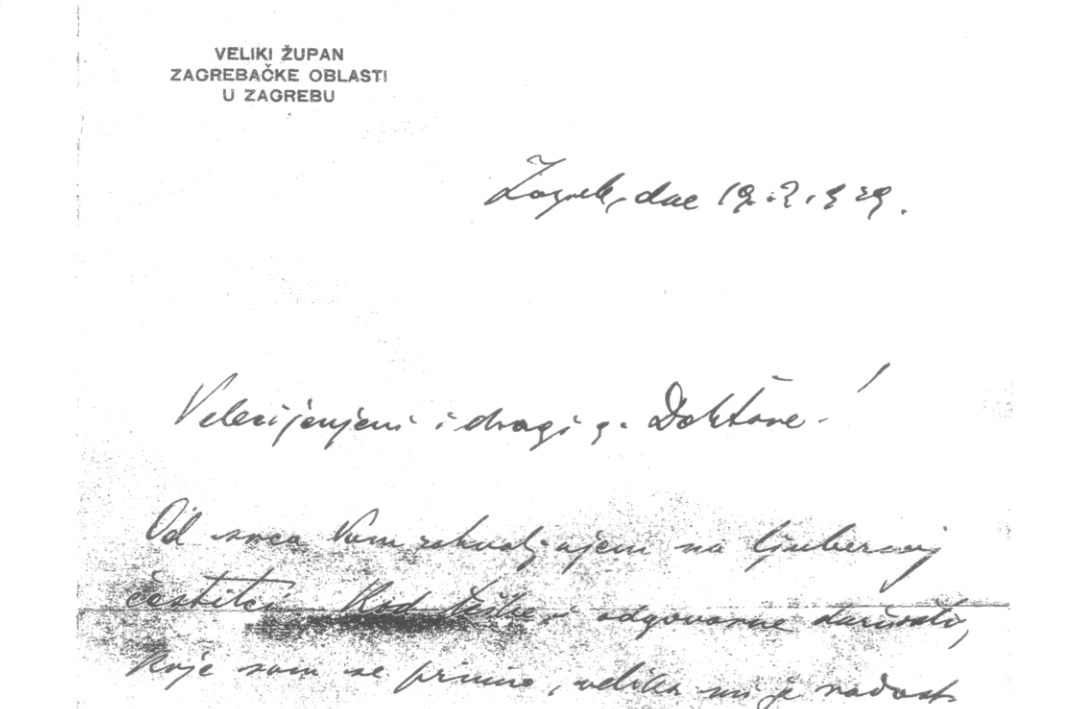 VELIKI ŽUPAN
ZAGREBAČKE OBLASTI
U ZAGREBU
Zagreb, dne 19.2.1929.
Velecijenjeni i dragi g. Doktore!
Od srca Vam zahvaljujem na ljubeznoj
čestitci. Kod teške i odgovorne dužnosti,
koje sam se primio, velika mi je radost